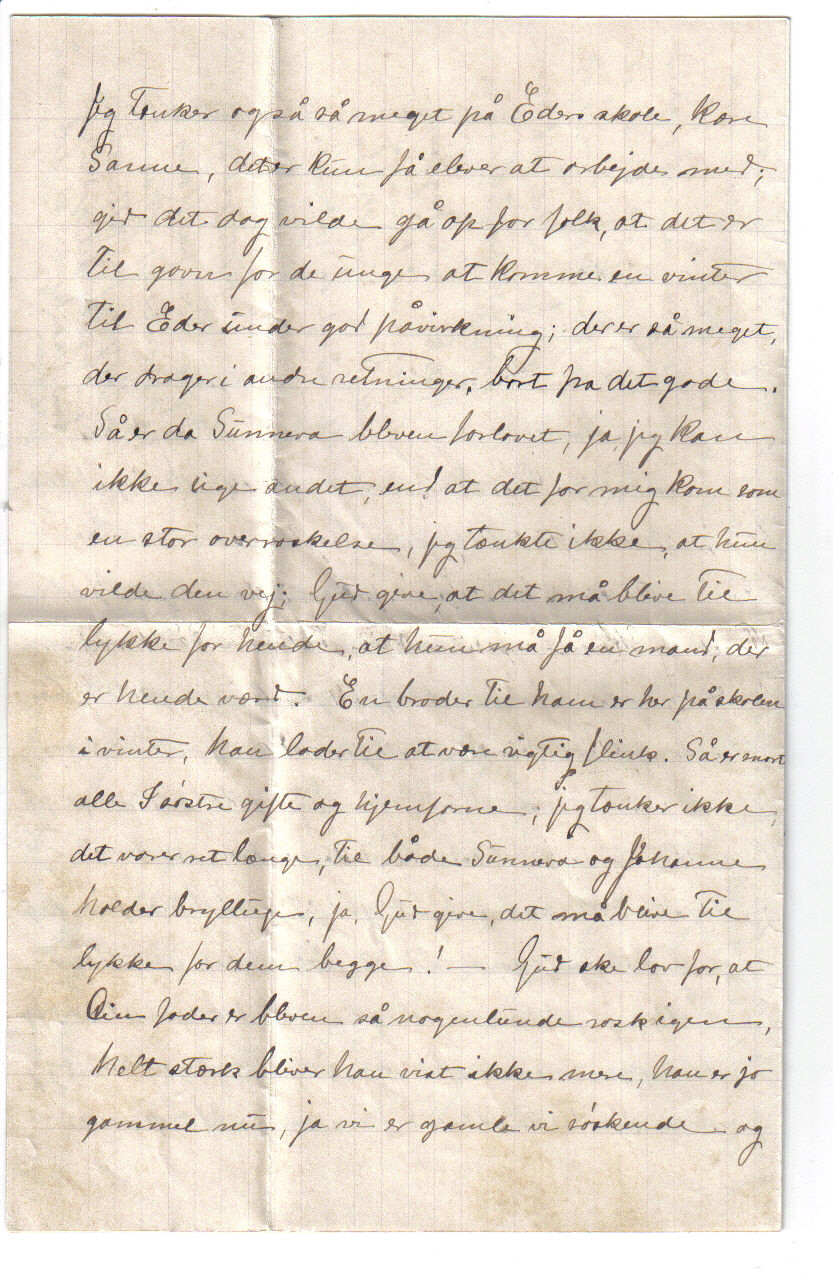 Jeg tænker også så meget på Eders skole, kære
Sanne, det er kun få elever at arbejde med;
gid det dog vilde gå op for folk, at det er
til gavn for de unge at komme en vinter
til Eder under god påvirkning; der er så meget,
der drager i andre retninger, bort fra det gode.
Så er da Sunneva bleven forlovet, ja, jeg kan
ikke sige andet, end at det for mig kom som
en stor overraskelse, jeg tænkte ikke, at hun
vilde den vej; Gud give, at det må blive til
lykke for hende, at hun må få en mand, der
er hende værd. En broder til ham er her på skolen
i vinter, han lader til at være rigtig flink. Så er snart
alle I søstre gifte og hjemfarne; jeg tænker ikke,
det varer ret længe, til både Sunneva og Johanne
holder bryllup, ja, Gud give, det må blive til
lykke for dem begge! — Gud ske lov for, at
Din fader er bleven så nogenlunde rask igen,
helt stærk bliver han vist ikke mere, han er jo
gammel nu, ja vi er gamle vi søskende og